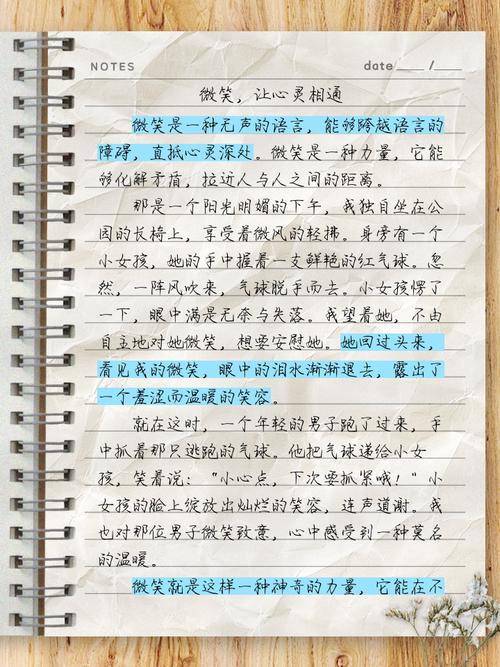 NOTES
date /
微笑，让心灵相通
微笑是一种无声的语言，能够跨越语言的
障碍，直抵心灵深处。微笑是一种力量，它能
够化解矛盾，拉近人与人之间的距离。
那是一个阳光明媚的下午，我独自坐在公
园的长椅上，享受着微风的轻拂。身旁有一个
小女孩，她的手中握着一支鲜艳的红气球。忽
然，一阵风吹来，气球脱手而去。小女孩愣了
一下，眼中满是无奈与失落。我望着她，不由
自主地对她微笑，想要安慰她。她回过头来，
看见我的微笑，眼中的泪水渐渐退去，露出了
一个羞涩而温暖的笑容。
就在这时，一个年轻的男子跑了过来，手
中抓着那只逃跑的气球。他把气球递给小女
孩，笑着说：“小心点，下次要抓紧哦！”小
女孩的脸上绽放出灿烂的笑容，连声道谢。我
也对那位男子微笑致意，心中感受到一种莫名
的温暖。
微笑就是这样一种神奇的力量，它能在不